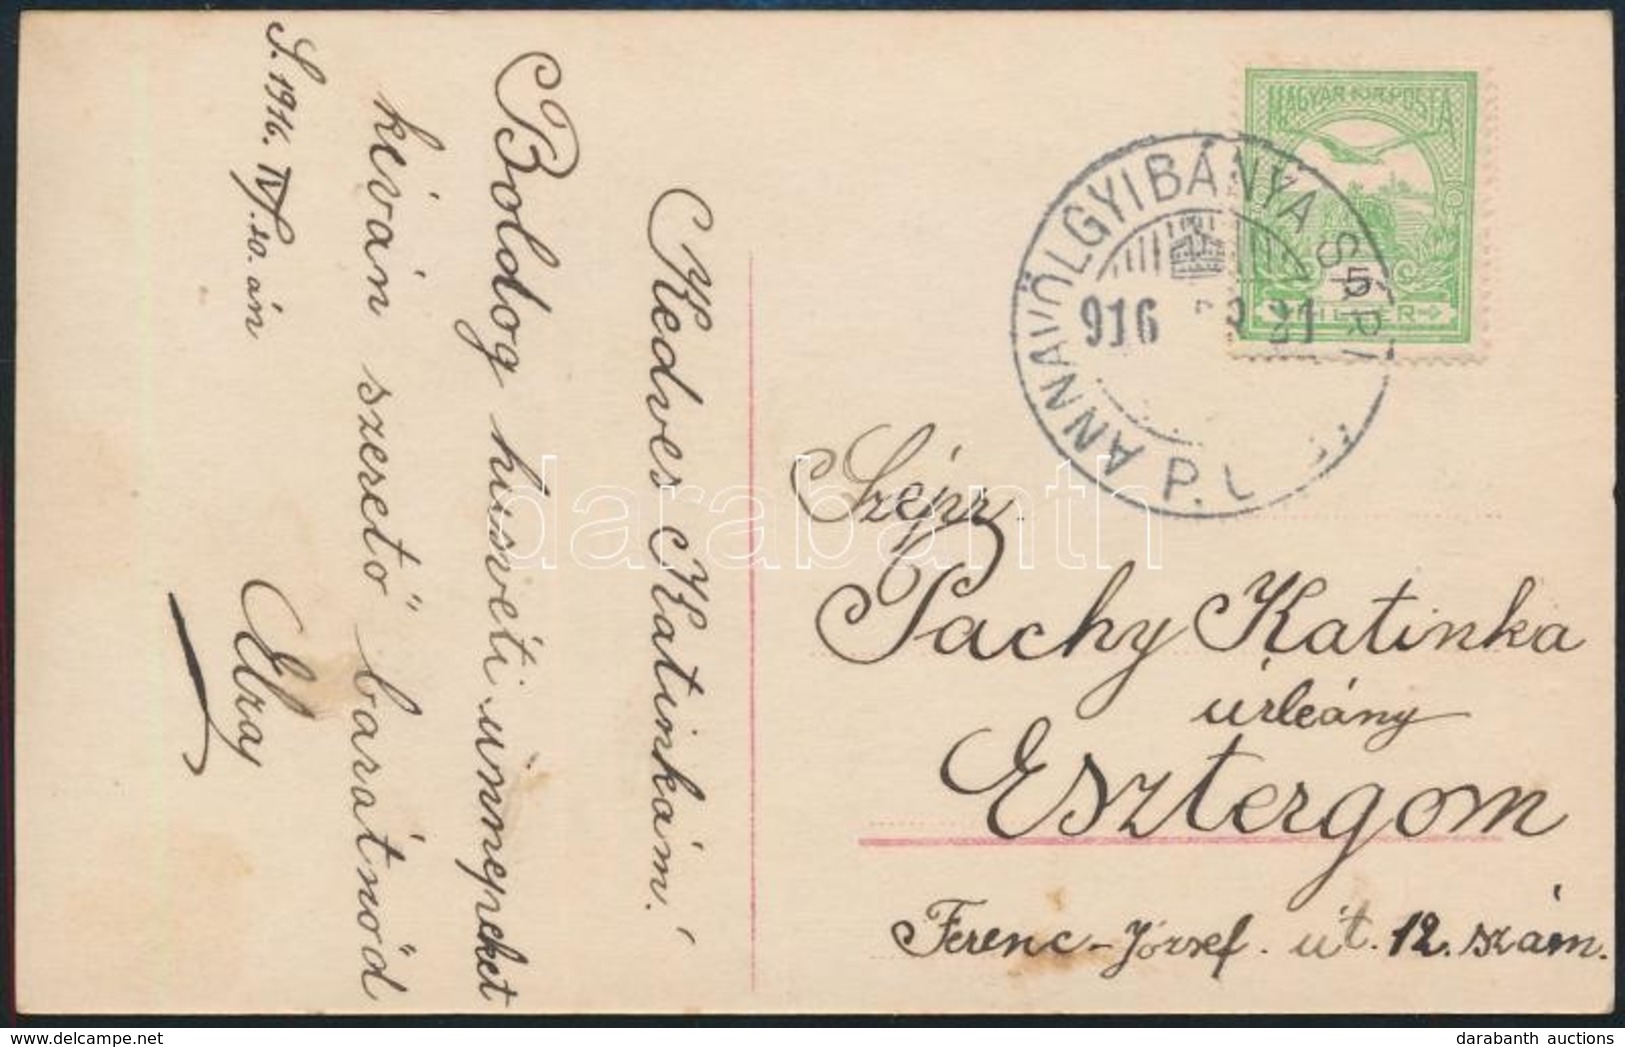 S. 1916. IV/20. án
Kedves Katinkám!
Boldog husvéti ünnepeket
kiván szerető barátnőd
MAGYAR KIR. POSTA
5
FILLÉR
ANNAVÖLGYIBÁNYA
916 21
P.
Szépr.
Pachy Katinka
úrleány
Esztergom
Ferenc-József. út. 12. szám.
darabanth
delcampe.net
darabanth auctions